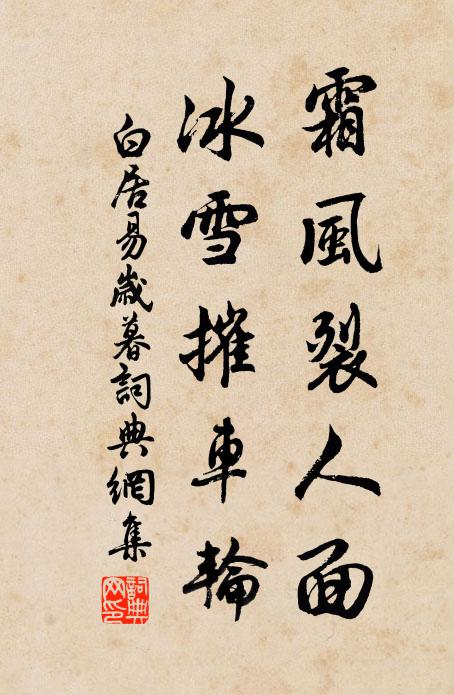 霜風裂人面
冰雪摧車輪
白居易歲暮詞典網集
詞典網印